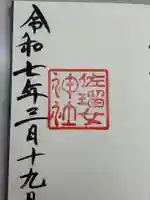 令和七年三月十九日
佐瑠女
神社